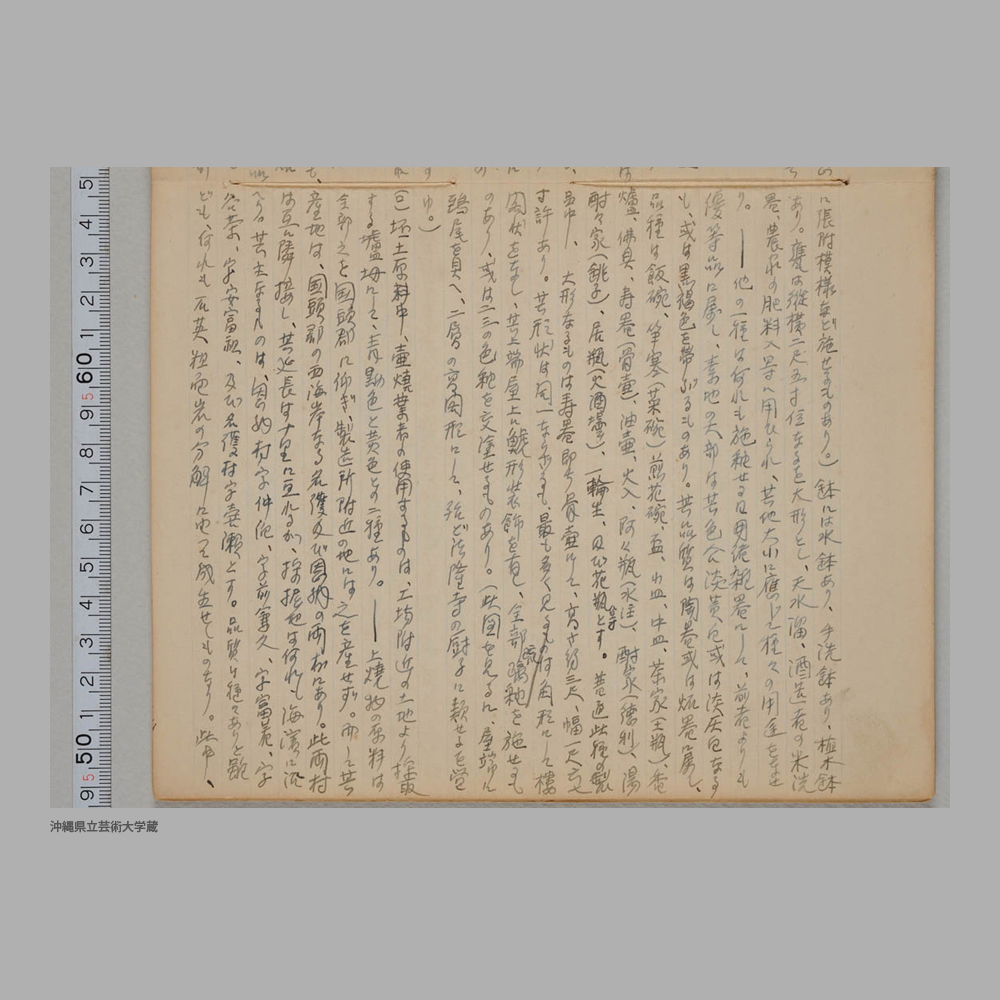 に張附模様など施せるものあり。)鉢には水鉢あり、手洗鉢あり、植木鉢
あり。甕は縦横二尺五寸位なるを大形とし、天水溜、酒造者の米洗
器、農家の肥料入等に用ひられ、其他大小に應じて種々の用途を
り。――他の一種は何れも施釉せる日用陶器にして、前者よりも
優等品に属し、素地の大部は其色合淡黄色或は淡灰色なる
も、或は黒褐色を帯ぶるものあり。其品質は陶器或は炻器に属し、
品種は飯碗、(茶碗)、煎花碗、盃、小皿、中皿、茶家(土瓶)、香
爐、佛具、寿器(骨壷)、油壷、火入、(水注)、酎家(徳利)、湯
酎々家(銚子)、居瓶(大酒壜)、一輪生、及び花瓶等とす。普通此種の製
品中、大形なるものは寿器即ち骨壷にして、高さ約三尺、幅一尺六七
寸許あり。其形状は同一ならざるも、最も多く見るものは角形にして楼
閣状をなし、其上端屋上に鯱形状飾を有し、全部琉璃釉を施せるも
のあり、或は二三の色釉を交塗せるものあり。(此図を見るに、屋端に
鴟尾を具へ、二層の方閣形にして、殆ど法隆寺の厨子に類せるを覚
ゆ。)
(二)坯土原料中、壷焼業者の使用するものは、工場附近の土地より採取
する壚坶にして、青黝色と黄色との二種あり。――上焼物の原料は
全部之を国頭郡に仰ぎ、製造所附近の地には之を産せず。而して其
産地は、国頭郡の西海岸なる名護及び恩納の両村にあり。此両村
は互に隣接し、其延長は十里に亘れるが、採掘地は何れも海濱に沿
へり。其主なるものは、恩納村字仲泊、字前兼久、字富着、字
谷茶、字安富祖、及び名護村字喜瀬とす。品質は種々ありと雖
ども、何れも石英粗面岩の分解に由つて成生せしものなり。此中、
5 4 3 2 1 60 9 5 8 7 6 5 4 3 2 1 50 5 9
沖縄県立芸術大学蔵